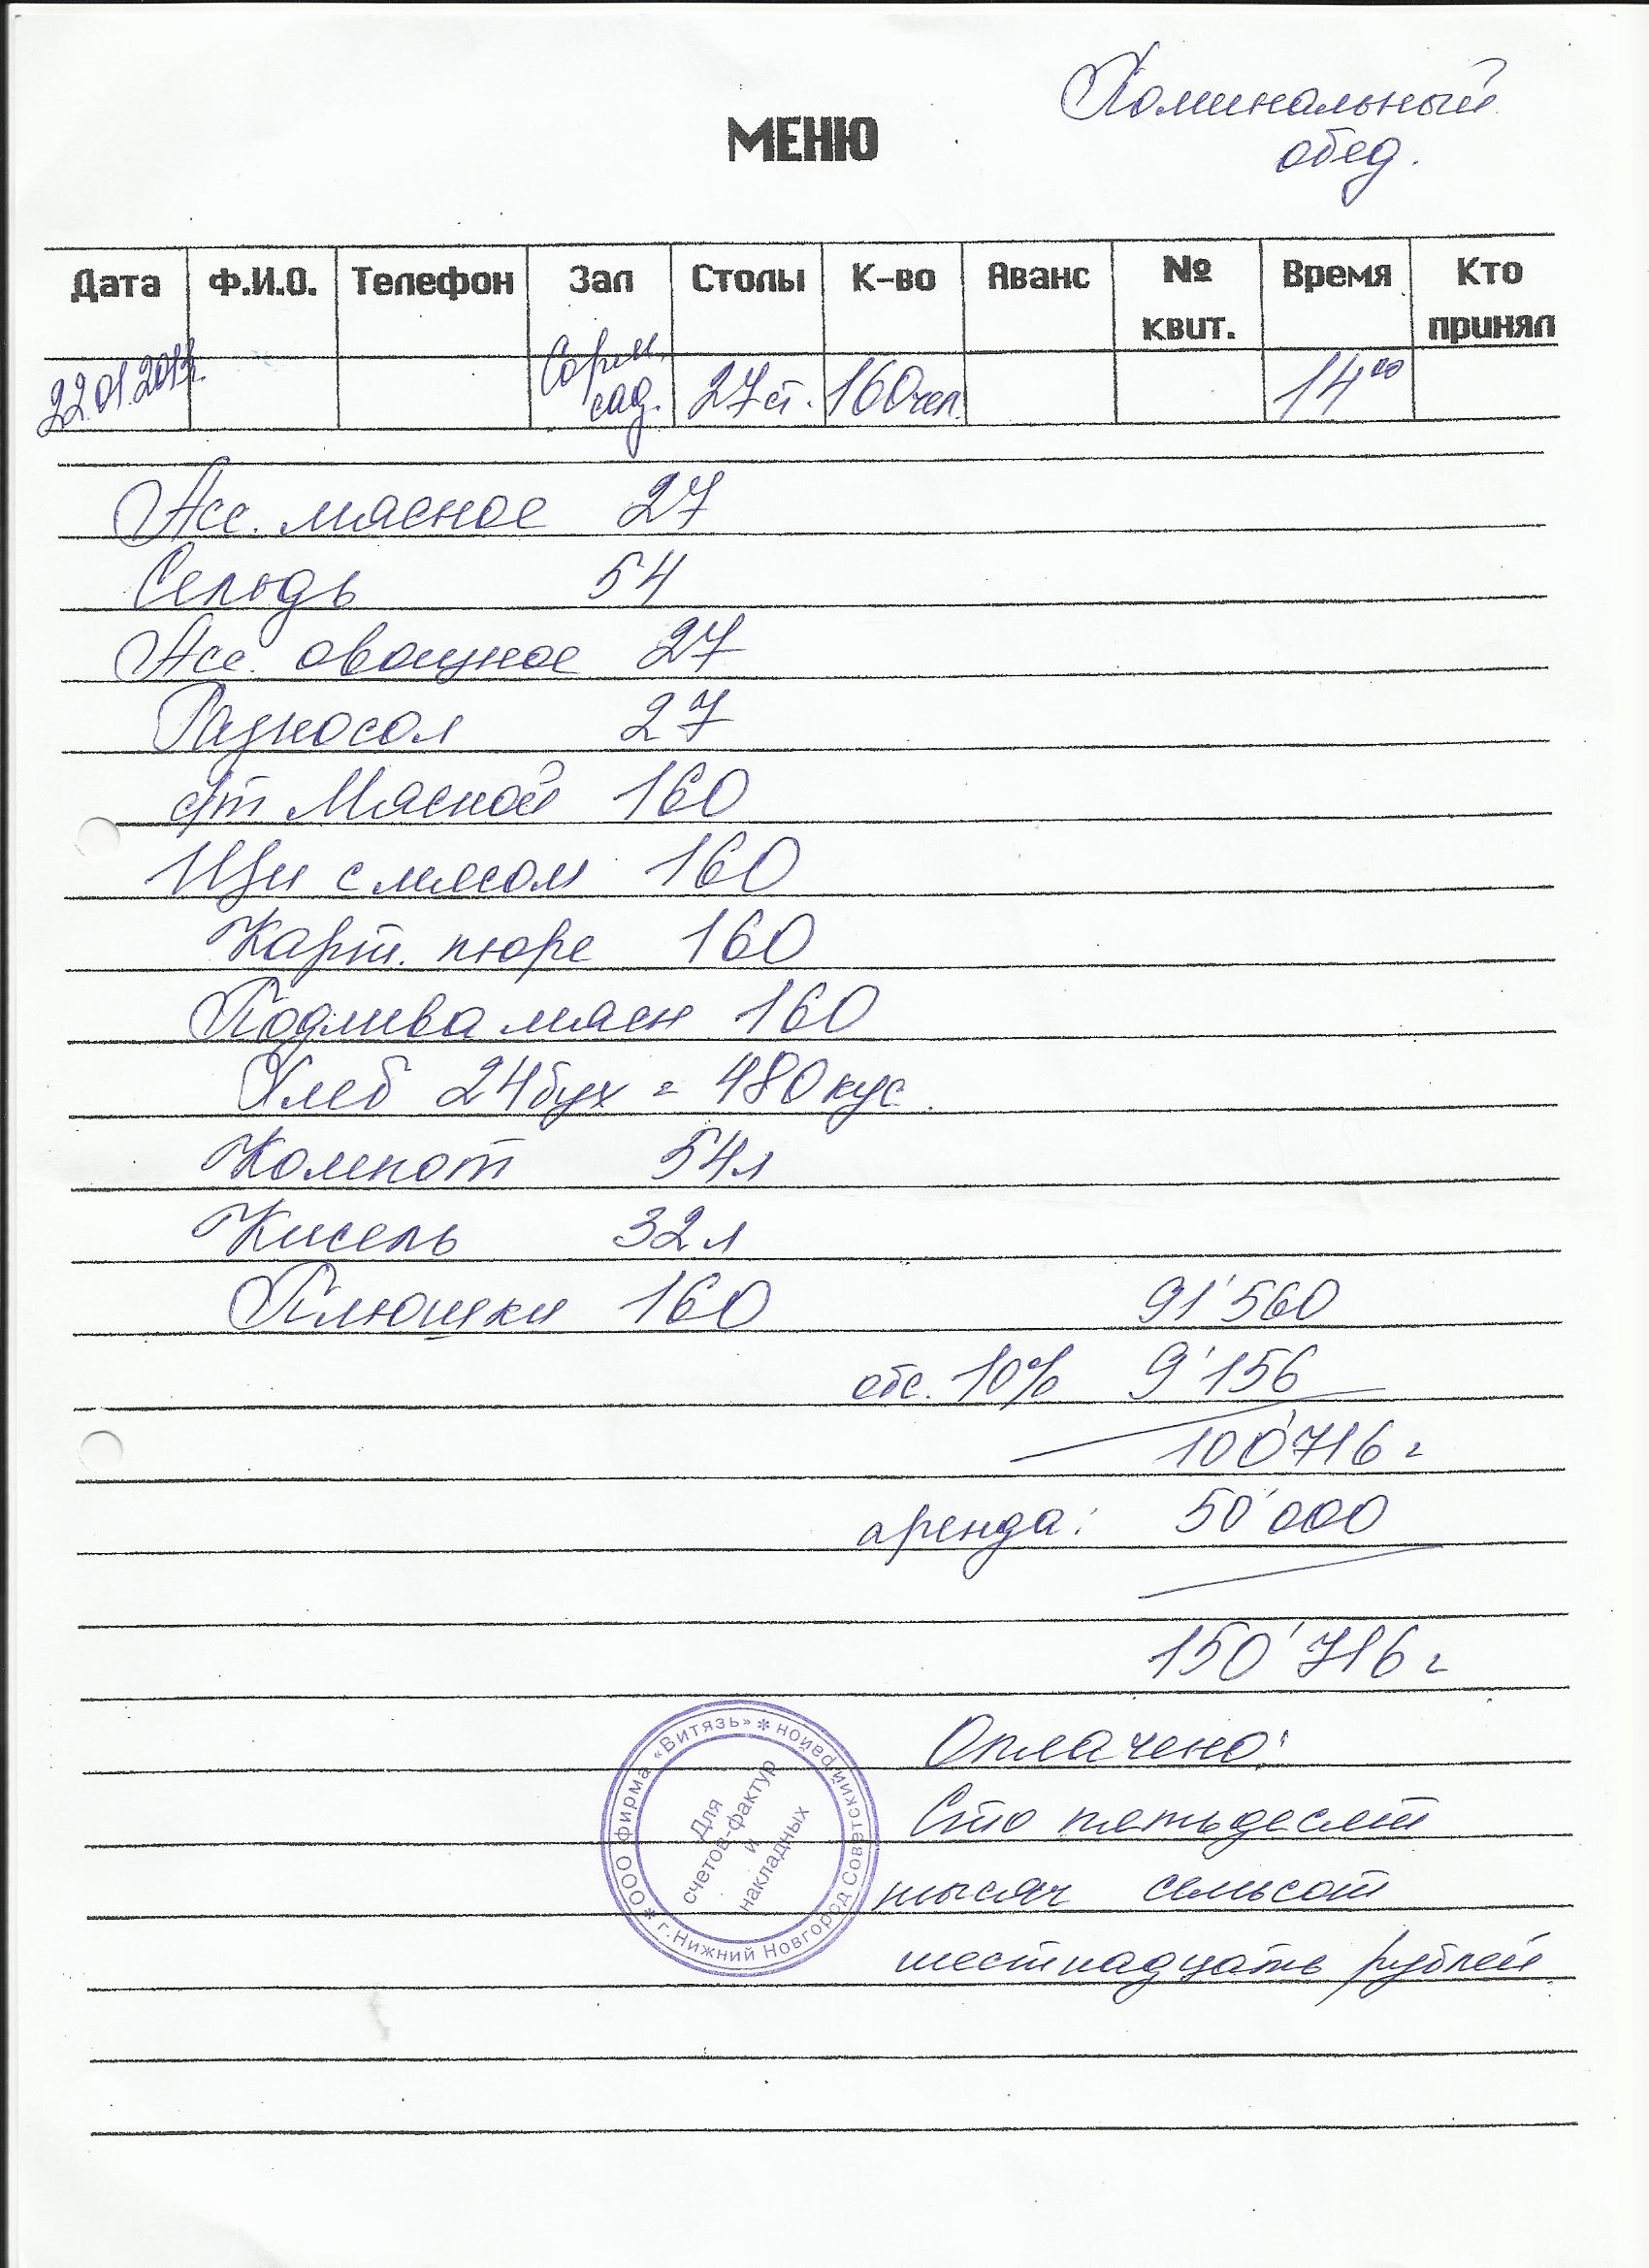 Поминальный
обед.
МЕНЮ
Дата Ф.И.О. Телефон Зал Столы К-во Аванс № квит. Время Кто принял
22.01.2013г. Сорм. сад. 27 ст. 160 чел. 14⁰⁰
Асс. мясное 27
Сельдь 54
Асс. овощное 27
Разносол 27
с/т Мясной 160
Щи с мясом 160
Карт. пюре 160
Подлива мясн 160
Хлеб 24 бух = 480 кус.
Компот 54 л
Кисель 32 л
Плюшки 160 91'560
обс. 10% 9'156
100'716=
аренда: 50'000
150'716=
Оплачено:
Сто пятьдесят
тысяч семьсот
шестнадцать рублей
ООО фирма «Витязь» * г.Нижний Новгород Советский район *
Для
счетов-фактур
и
накладных